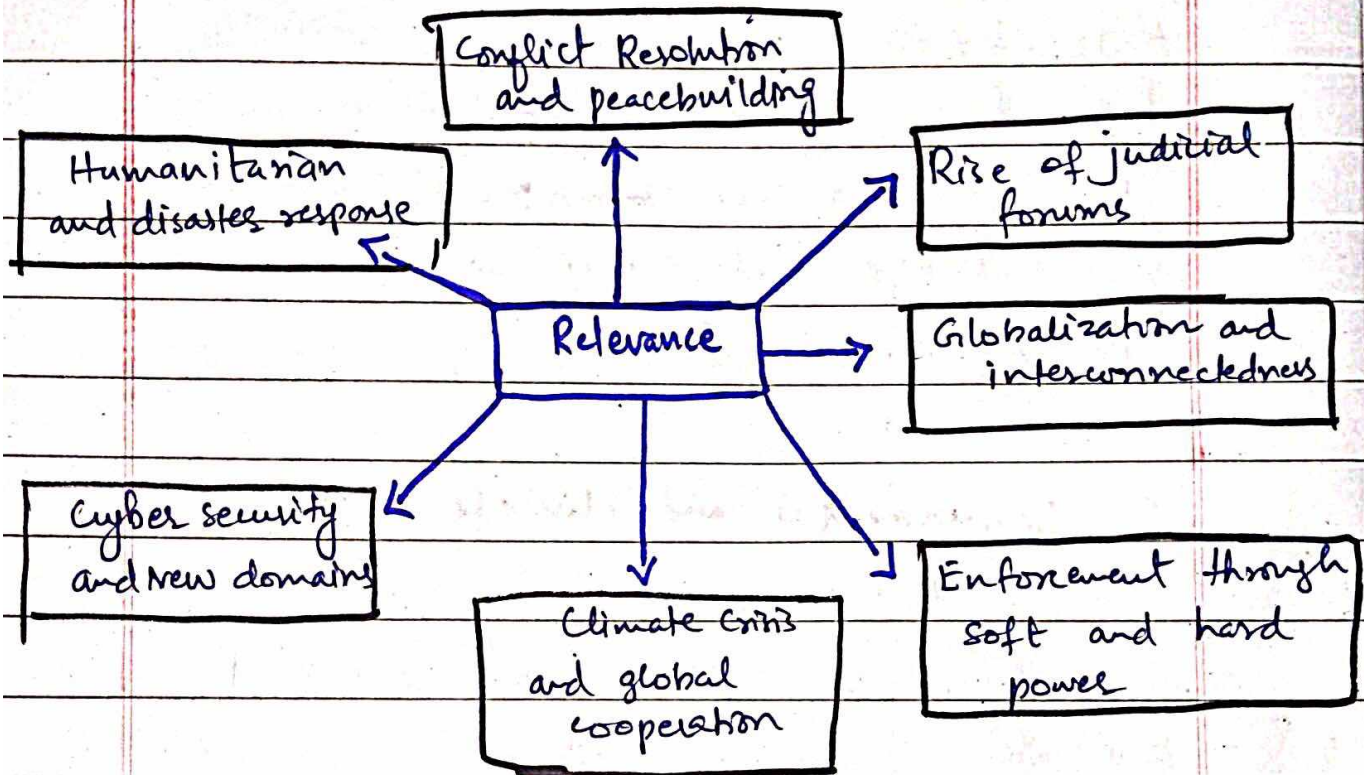 Conflict Resolution
and peacebuilding
Humanitarian
and disaster response
Rise of judicial
forums
Relevance
Globalization and
interconnectedness
Cyber security
and New domains
Climate Crisis
and global
cooperation
Enforcement through
soft and hard
power